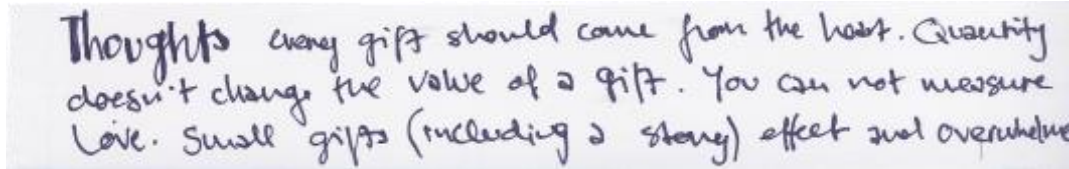 Thoughts every gift should come from the heart. Quantity
doesn't change the value of a gift. You can not measure
Love. Small gifts (including a stong) effect and overwhelme